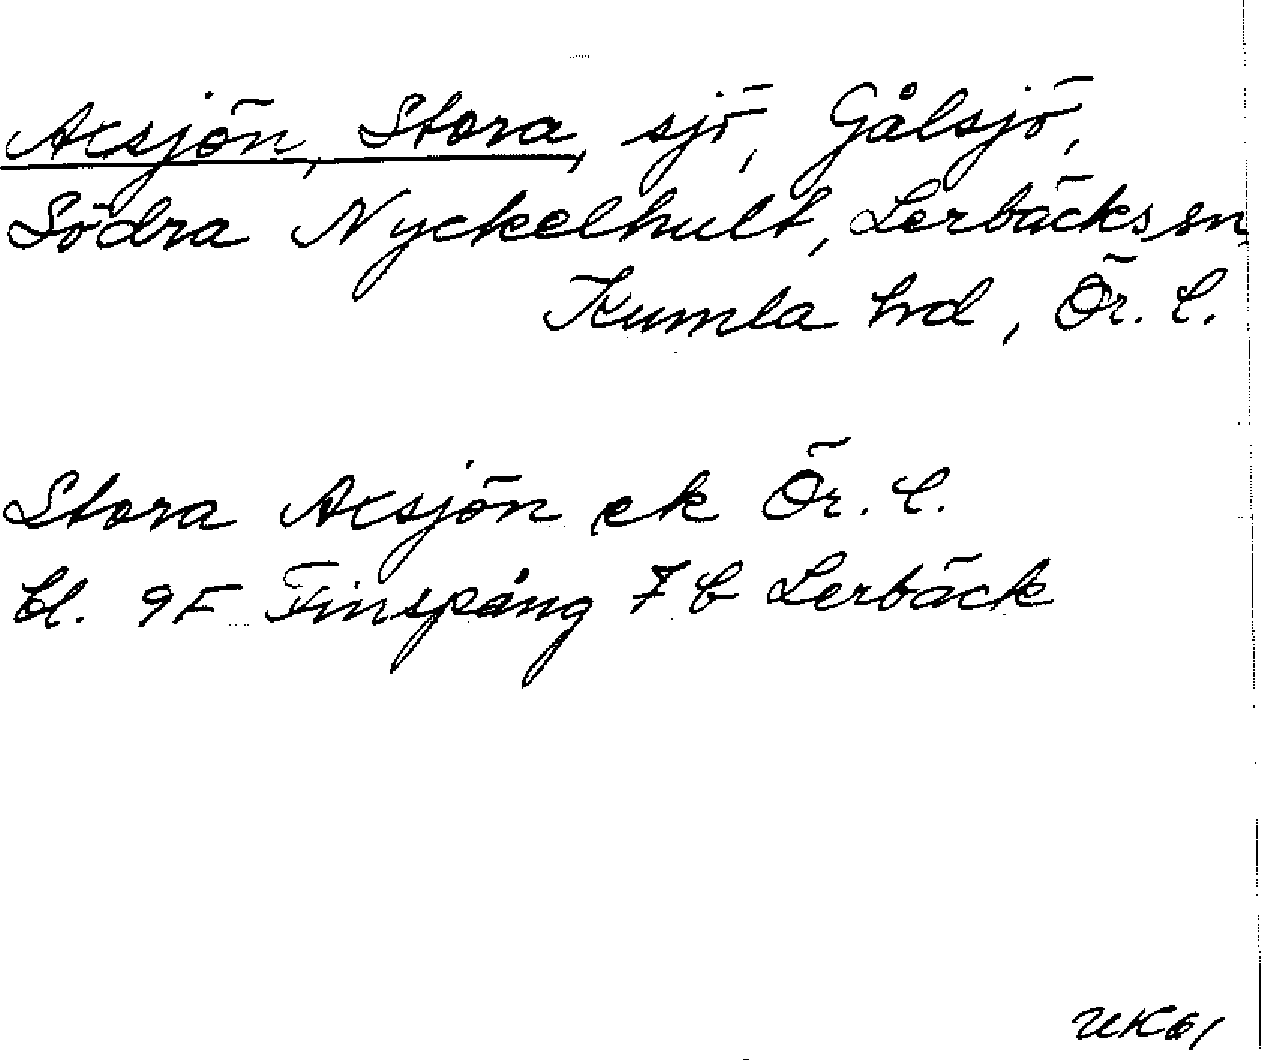 Axsjön, Stora, sjö, Gålsjö,
Södra Nyckelhult, Lerbäcks sn
Kumla hd, Ör. l.
Stora Axsjön ek Ör. l.
bl. 9F Finspång 7 b Lerbäck
UK61